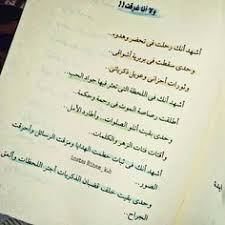 ولا أنا عرفت ((
أشهد أنك رحلت فى تحضر وهدوء..
وحدى سقطت فى بربرية أشواقى..
وثورات أحزانى وعويل ذكرياتى..
أشهد أنك فى اللحظة التى تعثر فيها جواد الحب..
أطلقت رصاصة الموت فى رحمة وحكمة..
وحدى بقيت أتلو الصلوات... وأطارد الأمل..
وأقتات فتات الزهر والكلمات..
أشهد أنك فى ثبات حطمت الهدايا ومزقت الرسائل وأحرقت
الصور..
وحدى بقيت خلف قضبان الذكريات أجتر اللحظات وألعق
الجراح..